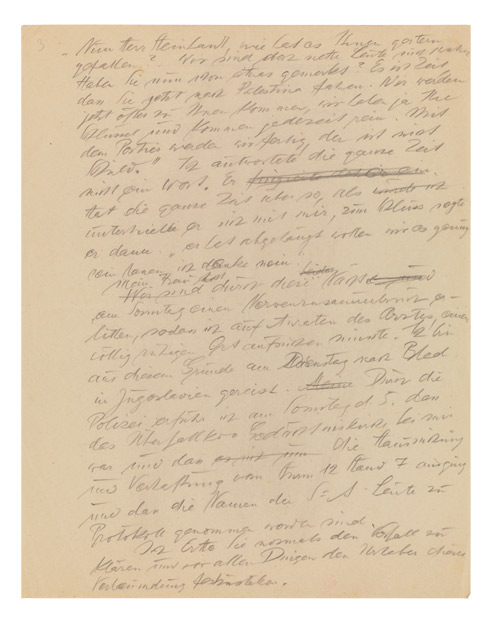 3
" Nun Herr Heimland, wie hat es Ihnen gestern
gefallen? Wir sind doch nette Leute
Haben Sie nun schon etwas gemerkt? Es ist Zeit
dass Sie jetzt nach Palestina fahren. Wir werden
jetzt öfters zu Ihnen kommen, wir haben ja Ihre
Schlüssel und kommen jederzeit rein. Mit
dem Portier werden wir fertig, der ist nicht
" Ich antwortete die ganze Zeit
nicht ein Wort. Er
tat die ganze Zeit aber so, als ich
unterhielte er sich mit mir, zum Schluss sagte
er dann: " es ist abgelängt wollen wir es
ich danke mein
Meine Frau hat
Wir sind durch diese
am Sonntag einen Nervenzusammenbruch er-
litten, sodass ich auf Anraten des Arztes einen
völlig ruhigen Ort aufsuchen musste. Ich bin
aus diesem Grunde am Dienstag nach Bled
in Jugoslavien gereist. Durch die
Polizei erfuhr ich am Sonntag d. 5. dass
das Überfallkdo bei mir
war und dass es sich um die Haussuchung
und Verhaftung vom Sturm 12 Stand 7 ausging
und dass die Namen der S=A. Leute zu
Protokoll genommen worden sind.
Ich bitte Sie nochmals den Vorfall zu
klären und vor allen Dingen den Urheber dieser
Verleumdung festzustellen.